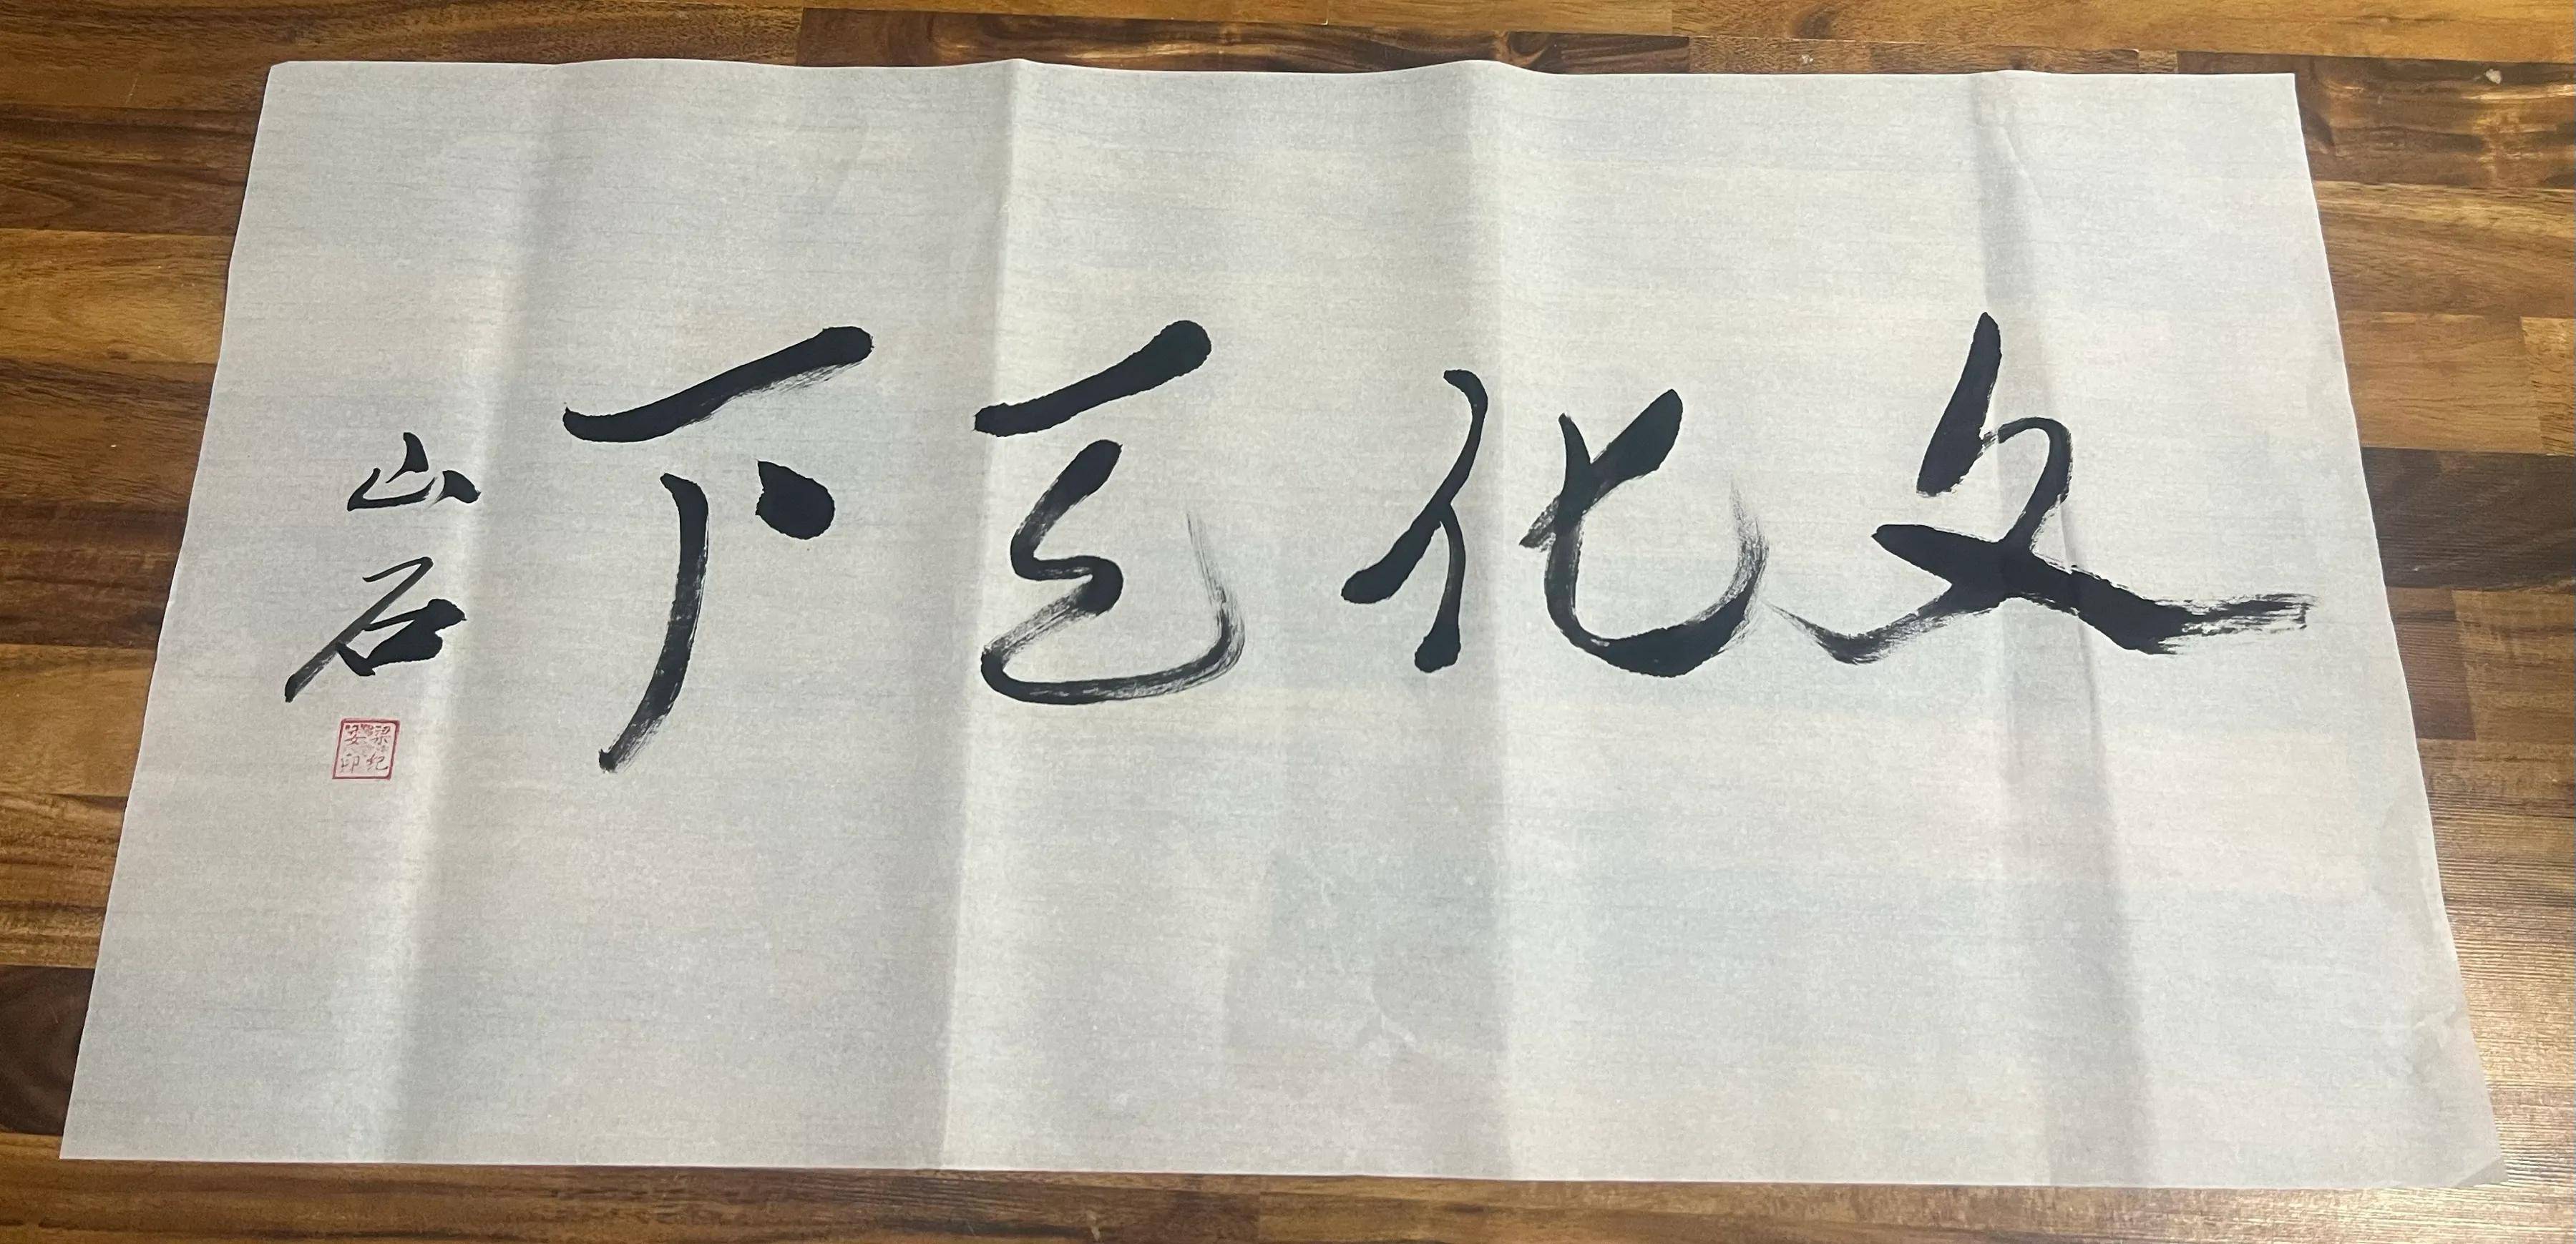 文化天下
山石
梁纪安印